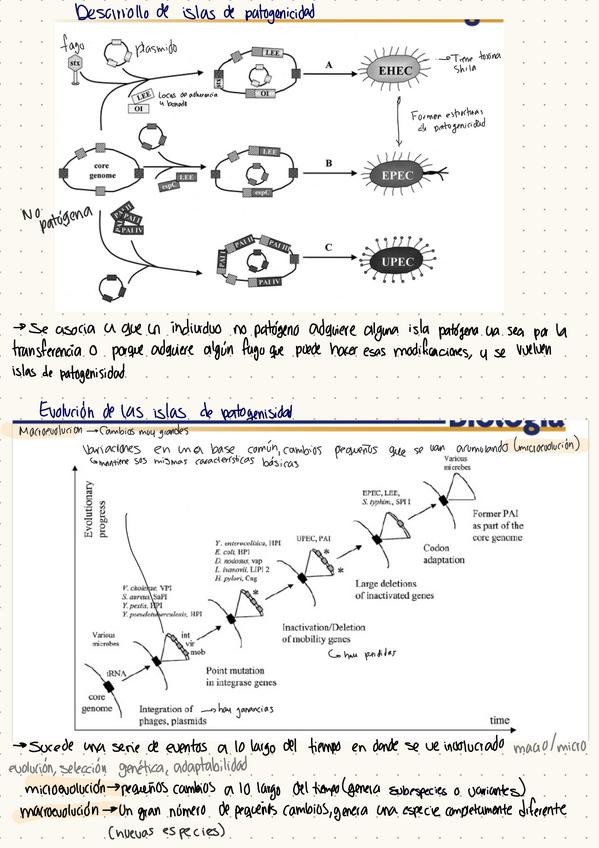 Desarrollo de islas de patogenicidad
fago
plasmido
stx
LEE
OI
Locus de adherencia
y borrado
LEE
stx
OI
A
EHEC
→ Tiene toxina
shila
Forman estructuras
de patogenicidad
core
genome
LEE
espC
LEE
espC
B
EPEC
No
patógena
PAI II
PAI I
PAI IV
PAI I
PAI II
PAI III
PAI IV
C
UPEC
→ Se asocia a que un individuo no patógeno adquiere alguna isla patógena ya sea por la
transferencia o porque adquiere algún fago que puede hacer esas modificaciones, y se vuelven
islas de patogenisidad
Evolución de las islas de patogenisidad
Biología
Macroevolucion → Cambios muy grandes
Variaciones en una base común, cambios pequeños que se van acumulando (microevolución)
mantiene sus mismas características básicas
Evolutionary
progress
Various
microbes
EPEC, LEE,
S. typhim., SPI 1
Former PAI
as part of the
core genome
Y. enterocolitica, HPI
E. coli, HPI
D. nodosus, vap
L. ivanovii, LIPI 2
H. pylori, Cag
UPEC, PAI
*
*
Codon
adaptation
Large deletions
of inactivated genes
V. cholerae, VPI
S. aureus, SaPI
Y. pestis, HPI
Y. pseudotuberculosis, HPI
*
Inactivation/Deletion
of mobility genes
↳ hay perdidas
Various
microbes
int
vir
mob
tRNA
Point mutation
in integrase genes
core
genome
Integration of
phages, plasmids
→ hay ganancias
time
→ Sucede una serie de eventos a lo largo del tiempo en donde se ve involucrado macro/micro
evolución, selección genética, adaptabilidad
microevolución → pequeños cambios a lo largo del tiempo (genera subespecies o variantes)
macroevolución → Un gran número de pequeños cambios, genera una especie completamente diferente
(nuevas especies)